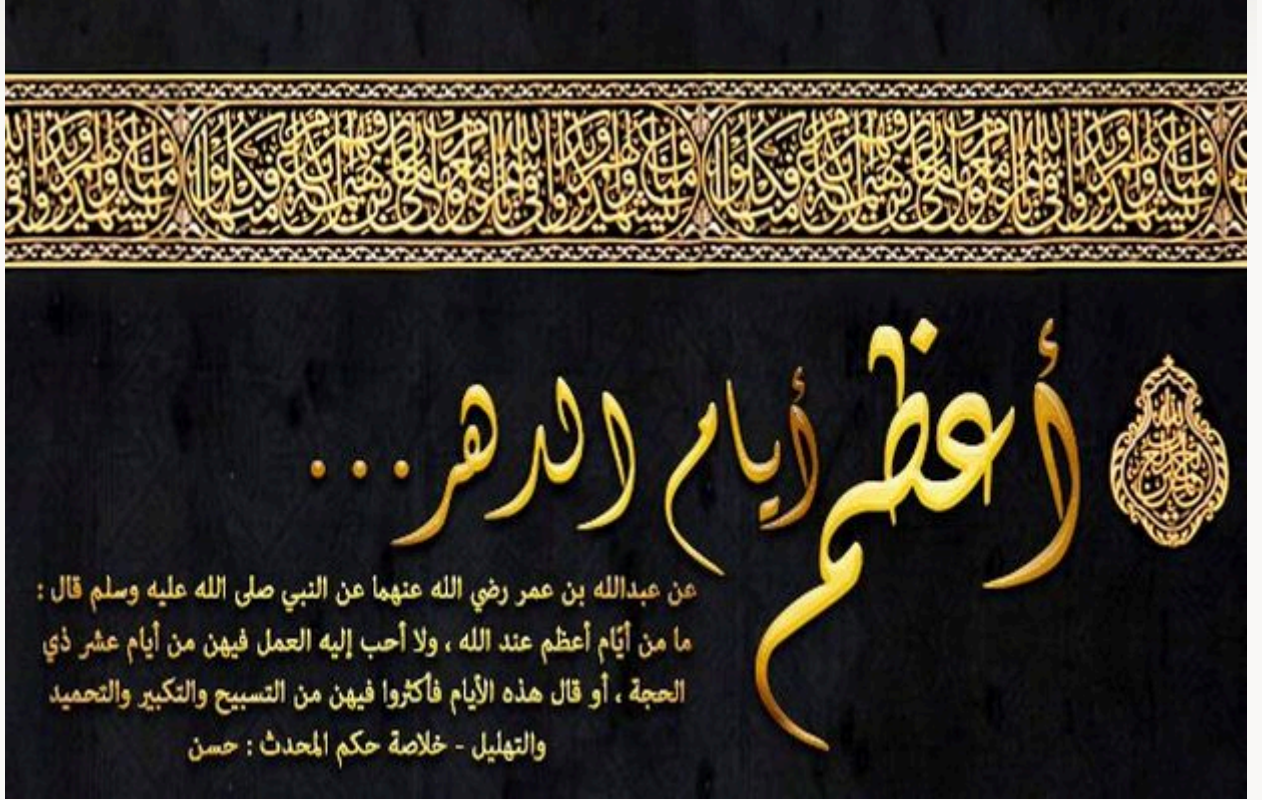 ليشهدوا منافع لهم ويذكروا
فكلوا منها
أعظم أيام الدهر...
عن عبدالله بن عمر رضي الله عنهما عن النبي صلى الله عليه وسلم قال :
ما من أيّام أعظم عند الله ، ولا أحب إليه العمل فيهن من أيام عشر ذي
الحجة ، أو قال هذه الأيام فأكثروا فيهن من التسبيح والتكبير والتحميد
والتهليل - خلاصة حكم المحدث : حسن